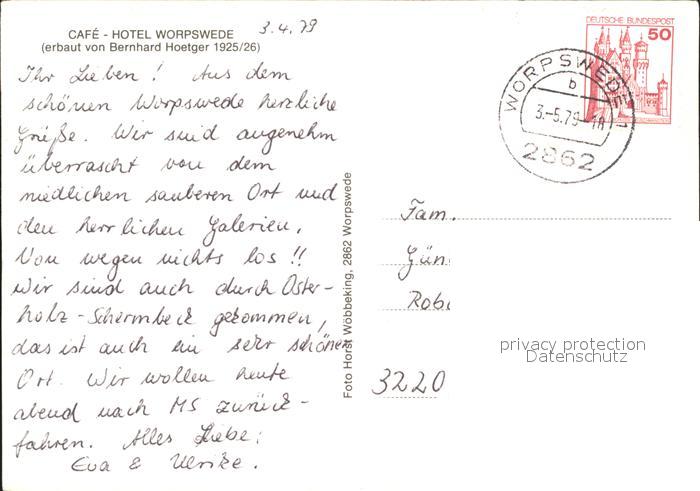 CAFÉ - HOTEL WORPSWEDE
(erbaut von Bernhard Hoetger 1925/26)
3.4.79
Ihr Lieben! Aus dem
schönen Worpswede herzliche
Grüße. Wir sind angenehm
überrascht von dem
niedlichen sauberen Ort und
den herrlichen Galerien.
Von wegen nichts los!!
Wir sind auch durch Oster-
holz-Schermbeck gekommen,
das ist auch ein sehr schöner
Ort. Wir wollen heute
abend nach MS zurück-
fahren. Alles Liebe:
Eva & Ulrike.
Foto Horst Wöbbeking, 2862 Worpswede
DEUTSCHE BUNDESPOST
50
WORPSWEDE 1
b
3.-5.79-18
2862
Fam.
Gün
Rob
3220
privacy protection
Datenschutz